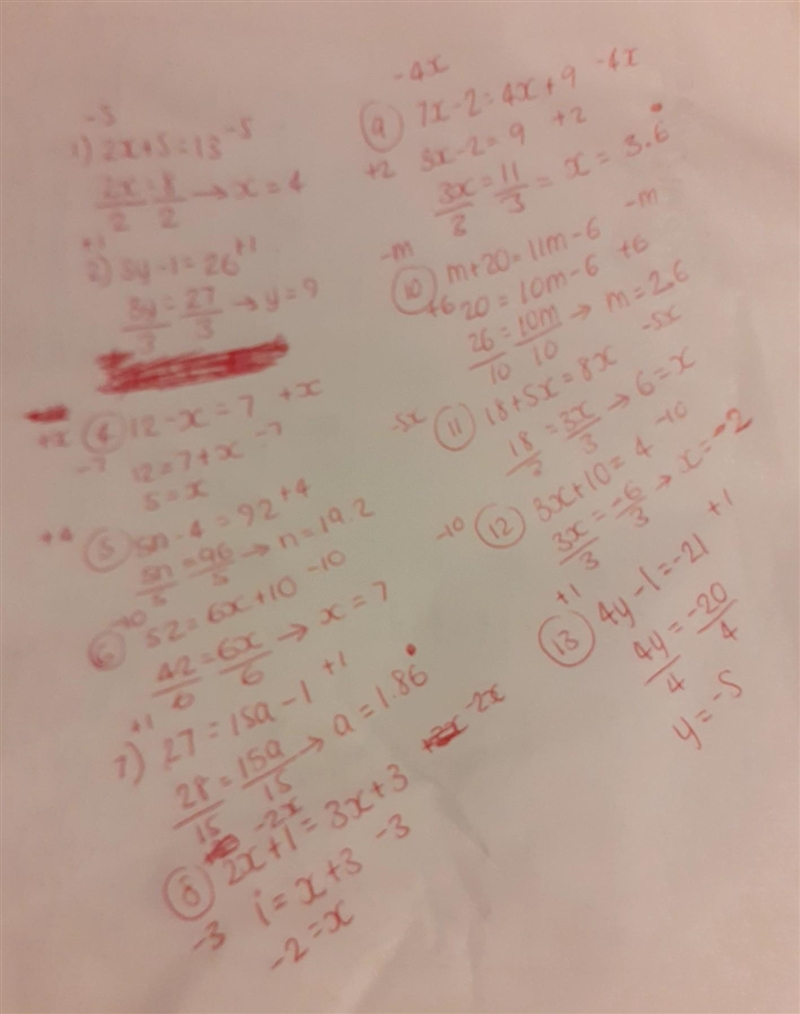 -5
1) 2x+5=13 -5
2x/2 = 8/2 → x=4
+1
2) 3y-1=26 +1
3y/3 = 27/3 → y=9
+x ④ 12-x=7 +x
-7 12=7+x -7
5=x
+4 ⑤ 5n-4=92 +4
5n/5 = 96/5 → n=19.2
-10
⑥ 52=6x+10 -10
42/6 = 6x/6 → x=7
+1
7) 27=15a-1 +1
28/15 = 15a/15 → a=1.86̇
-2x
⑧ 2x+1=3x+3 -2x
-3 1=x+3 -3
-2=x
-4x
⑨ 7x-2=4x+9 -4x
+2 3x-2=9 +2
3x/3 = 11/3 = x=3.6̇
-m -m
⑩ m+20=11m-6
+6 20=10m-6 +6
26/10 = 10m/10 → m=2.6
-5x ⑪ 18+5x=8x -5x
18/3 = 3x/3 → 6=x
-10 ⑫ 3x+10=4 -10
3x/3 = -6/3 → x=-2
+1
⑬ 4y-1=-21 +1
4y/4 = -20/4
y=-5